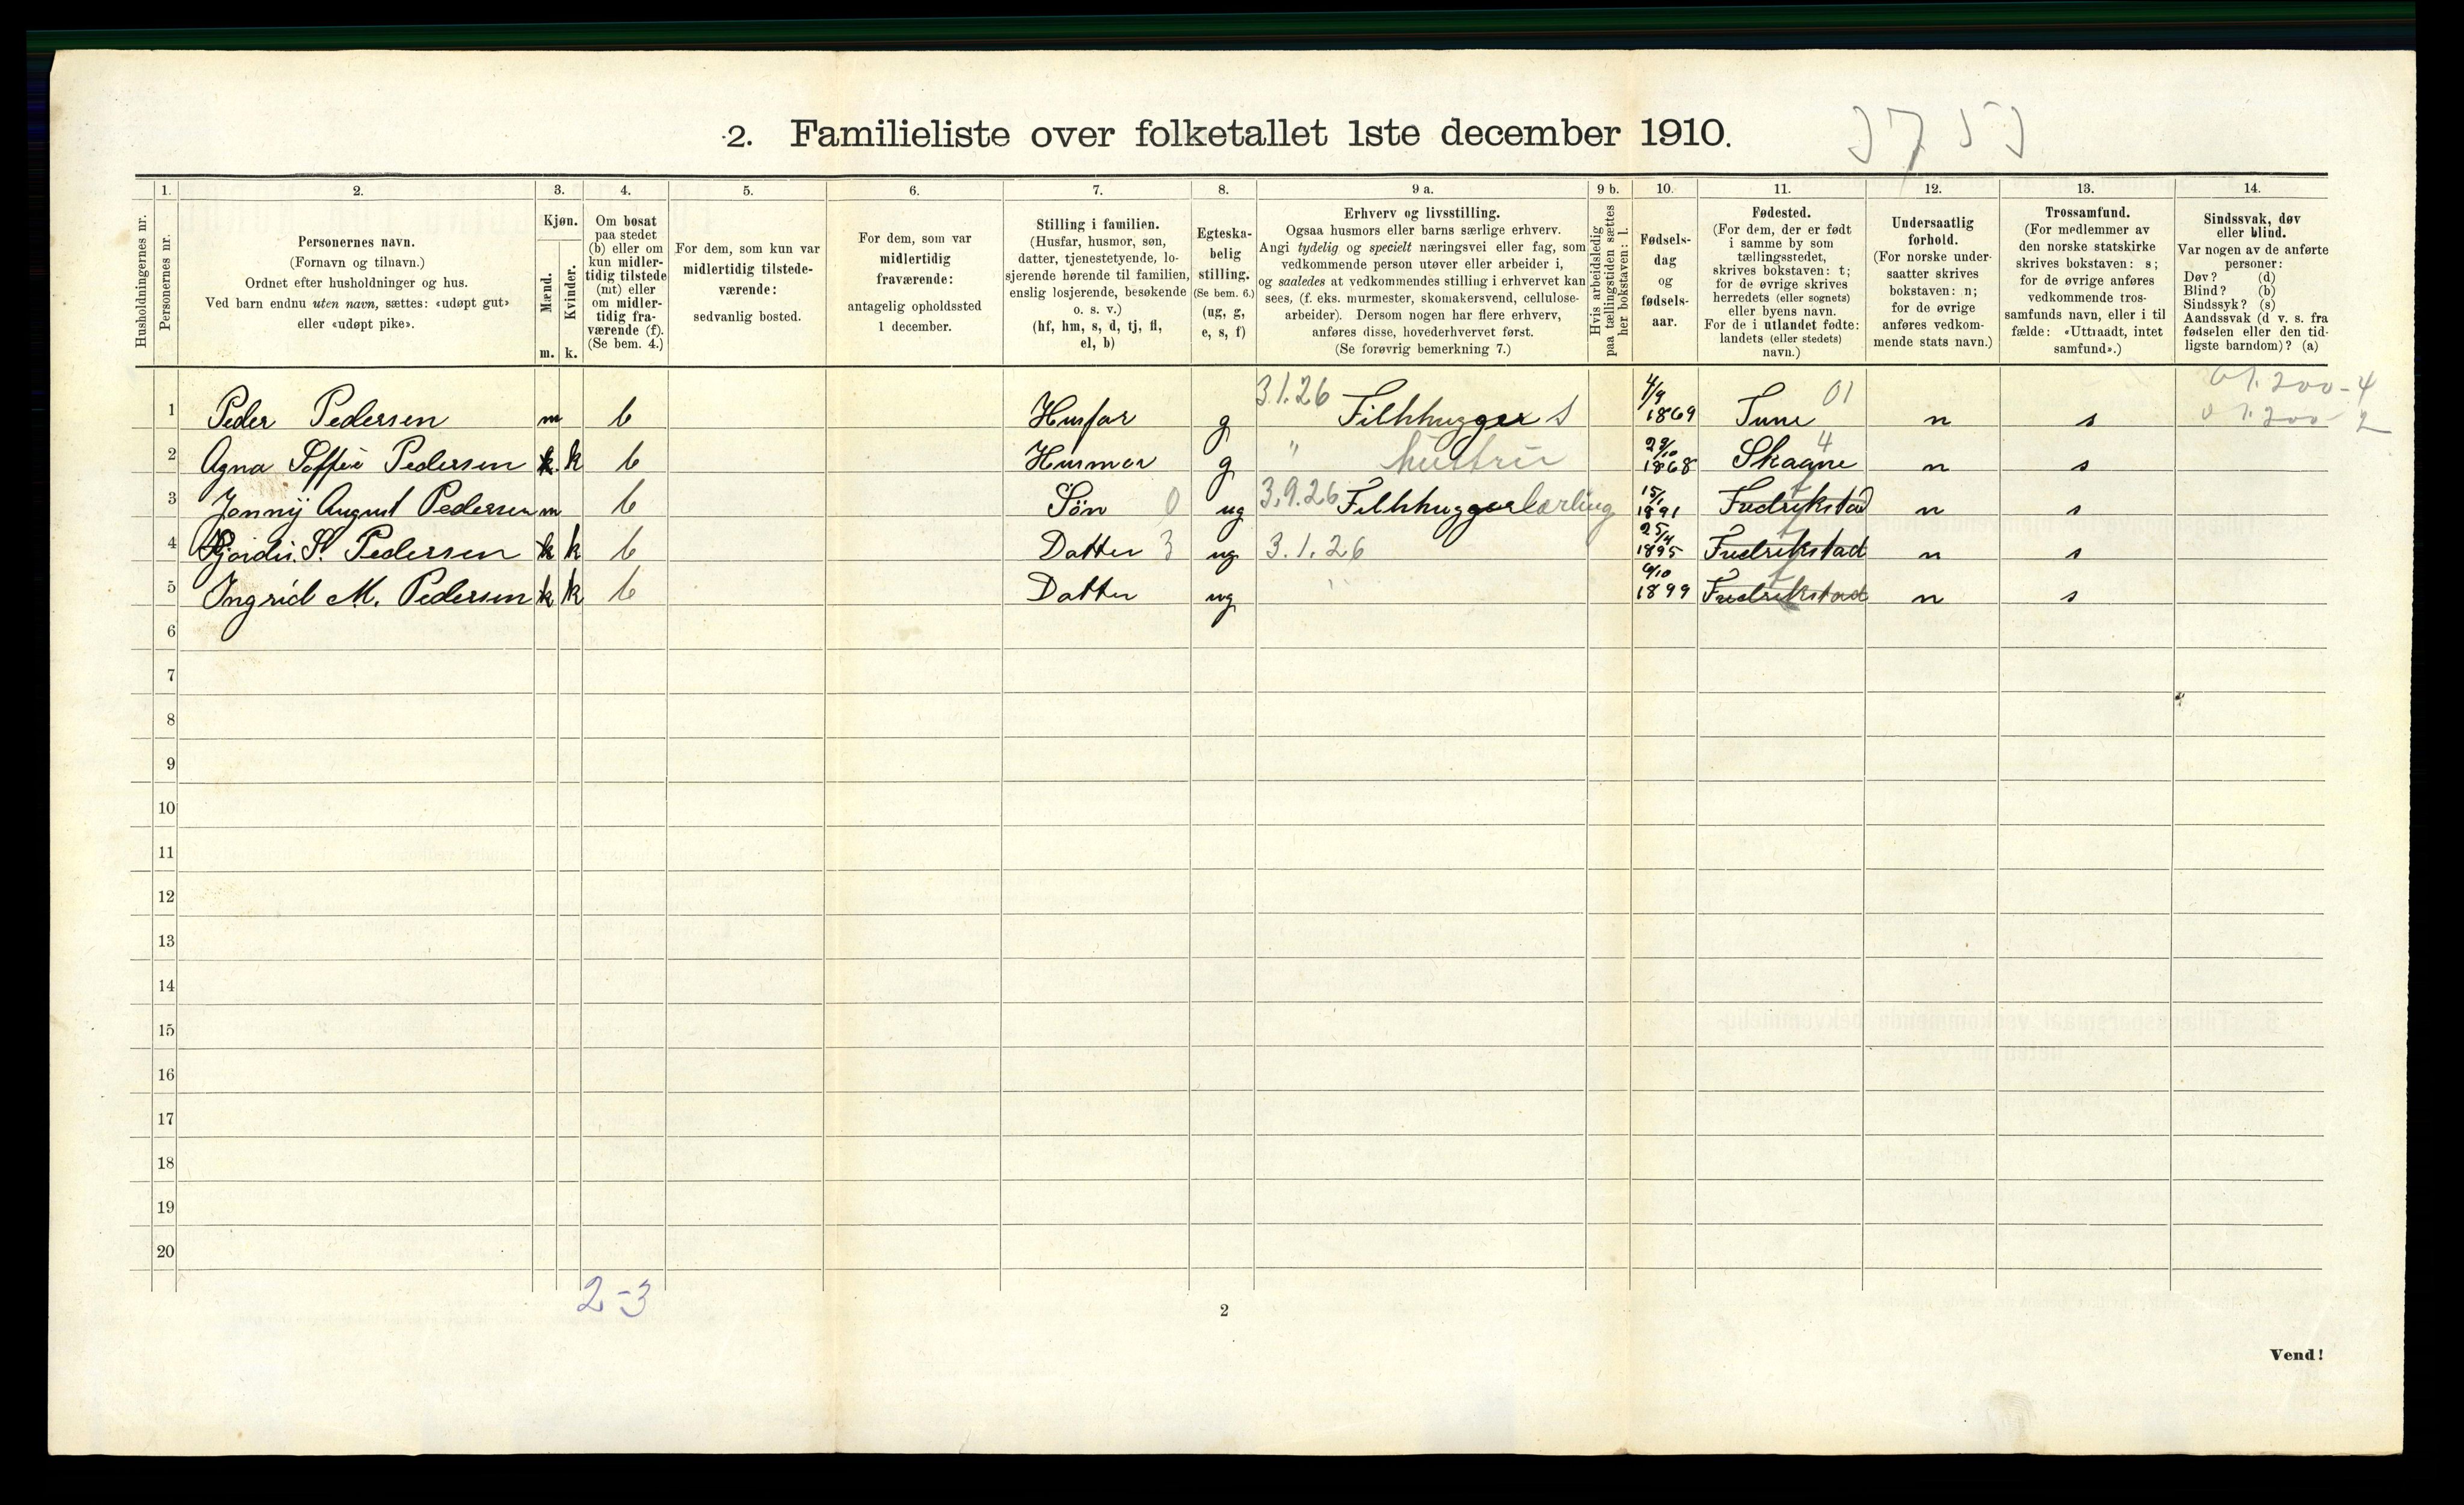 2. Familieliste over folketallet 1ste december 1910.
Husholdningernes nr.
1.
Personernes nr.
2.
Personernes navn.
(Fornavn og tilnavn.)
Ordnet efter husholdninger og hus.
Ved barn endnu uten navn, sættes: «udøpt gut»
eller «udøpt pike».
3.
Kjøn.
Mænd.
m.
Kvinder.
k.
4.
Om bosat
paa stedet
(b) eller om
kun midler-
tidig tilstede
(mt) eller
om midler-
tidig fra-
værende (f).
(Se bem. 4.)
5.
For dem, som kun var
midlertidig tilstede-
værende:
sedvanlig bosted.
6.
For dem, som var
midlertidig
fraværende:
antagelig opholdssted
1 december.
7.
Stilling i familien.
(Husfar, husmor, søn,
datter, tjenestetyende, lo-
sjerende hørende til familien,
enslig losjerende, besøkende
o. s. v.)
(hf, hm, s, d, tj, fl,
el, b)
8.
Egteska-
belig
stilling.
(Se bem. 6.)
(ug, g,
e, s, f)
9 a.
Erhverv og livsstilling.
Ogsaa husmors eller barns særlige erhverv.
Angi tydelig og specielt næringsvei eller fag, som
vedkommende person utøver eller arbeider i,
og saaledes at vedkommendes stilling i erhvervet kan
sees, (f. eks. murmester, skomakersvend, cellulose-
arbeider). Dersom nogen har flere erhverv,
anføres disse, hovederhvervet først.
(Se forøvrig bemerkning 7.)
9 b.
Hvis arbeidsledig
paa tællingstiden sættes
her bokstaven: l.
10.
Fødsels-
dag
og
fødsels-
aar.
11.
Fødested.
(For dem, der er født
i samme by som
tællingsstedet,
skrives bokstaven: t;
for de øvrige skrives
herredets (eller sognets)
eller byens navn.
For de i utlandet fødte:
landets (eller stedets)
navn.)
12.
Undersaatlig
forhold.
(For norske under-
saatter skrives
bokstaven: n;
for de øvrige
anføres vedkom-
mende stats navn.)
13.
Trossamfund.
(For medlemmer av
den norske statskirke
skrives bokstaven: s;
for de øvrige anføres
vedkommende tros-
samfunds navn, eller i til
fælde: «Uttraadt, intet
samfund».)
14.
Sindssvak, døv
eller blind.
Var nogen av de anførte
personer:
Døv? (d)
Blind? (b)
Sindssyk? (s)
Aandssvak (d v. s. fra
fødselen eller den tid-
ligste barndom)? (a)
1 Peder Pedersen m b Husfar g 3.1.26 Filhhugger S 4/9 1869 Tune 01 n s
2 Agna Soffie Pedersen k k b Husmor g " hustru 29/10 1868 Skagne 4 n s
3 Jonny August Pedersen m b Søn 0 ug 3.9.26 Filhhuggerlærling 15/1 1891 Fredrikstad t n s
4 Hjordis. S. Pedersen k k b Datter 3 ug 3.1.26 25/4 1895 Fredrikstad t n s
5 Ingrid M. Pedersen k k b Datter ug " 6/10 1899 Fredrikstad t n s
6
7
8
9
10
11
12
13
14
15
16
17
18
19
20
2-3
2
Vend!